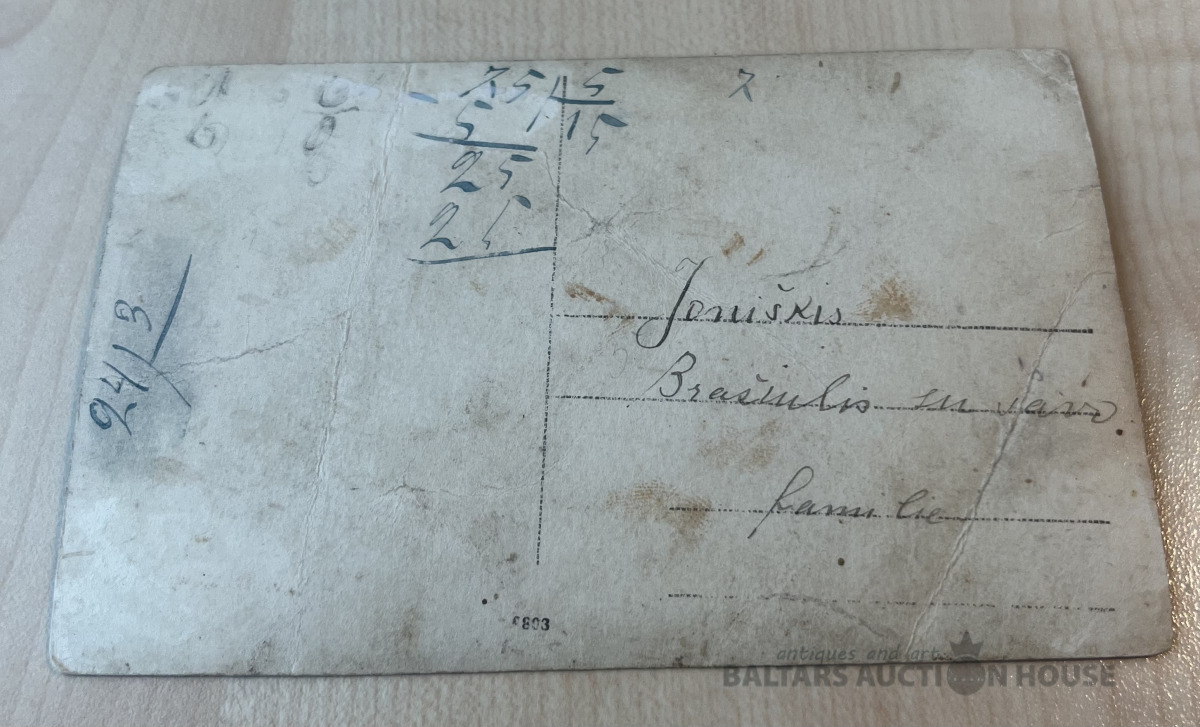 75 5
5 15
25
25
7
24/3
Joniškis
Brašiulis su savo
familie
antiques and art
BALTARS AUCTION HOUSE